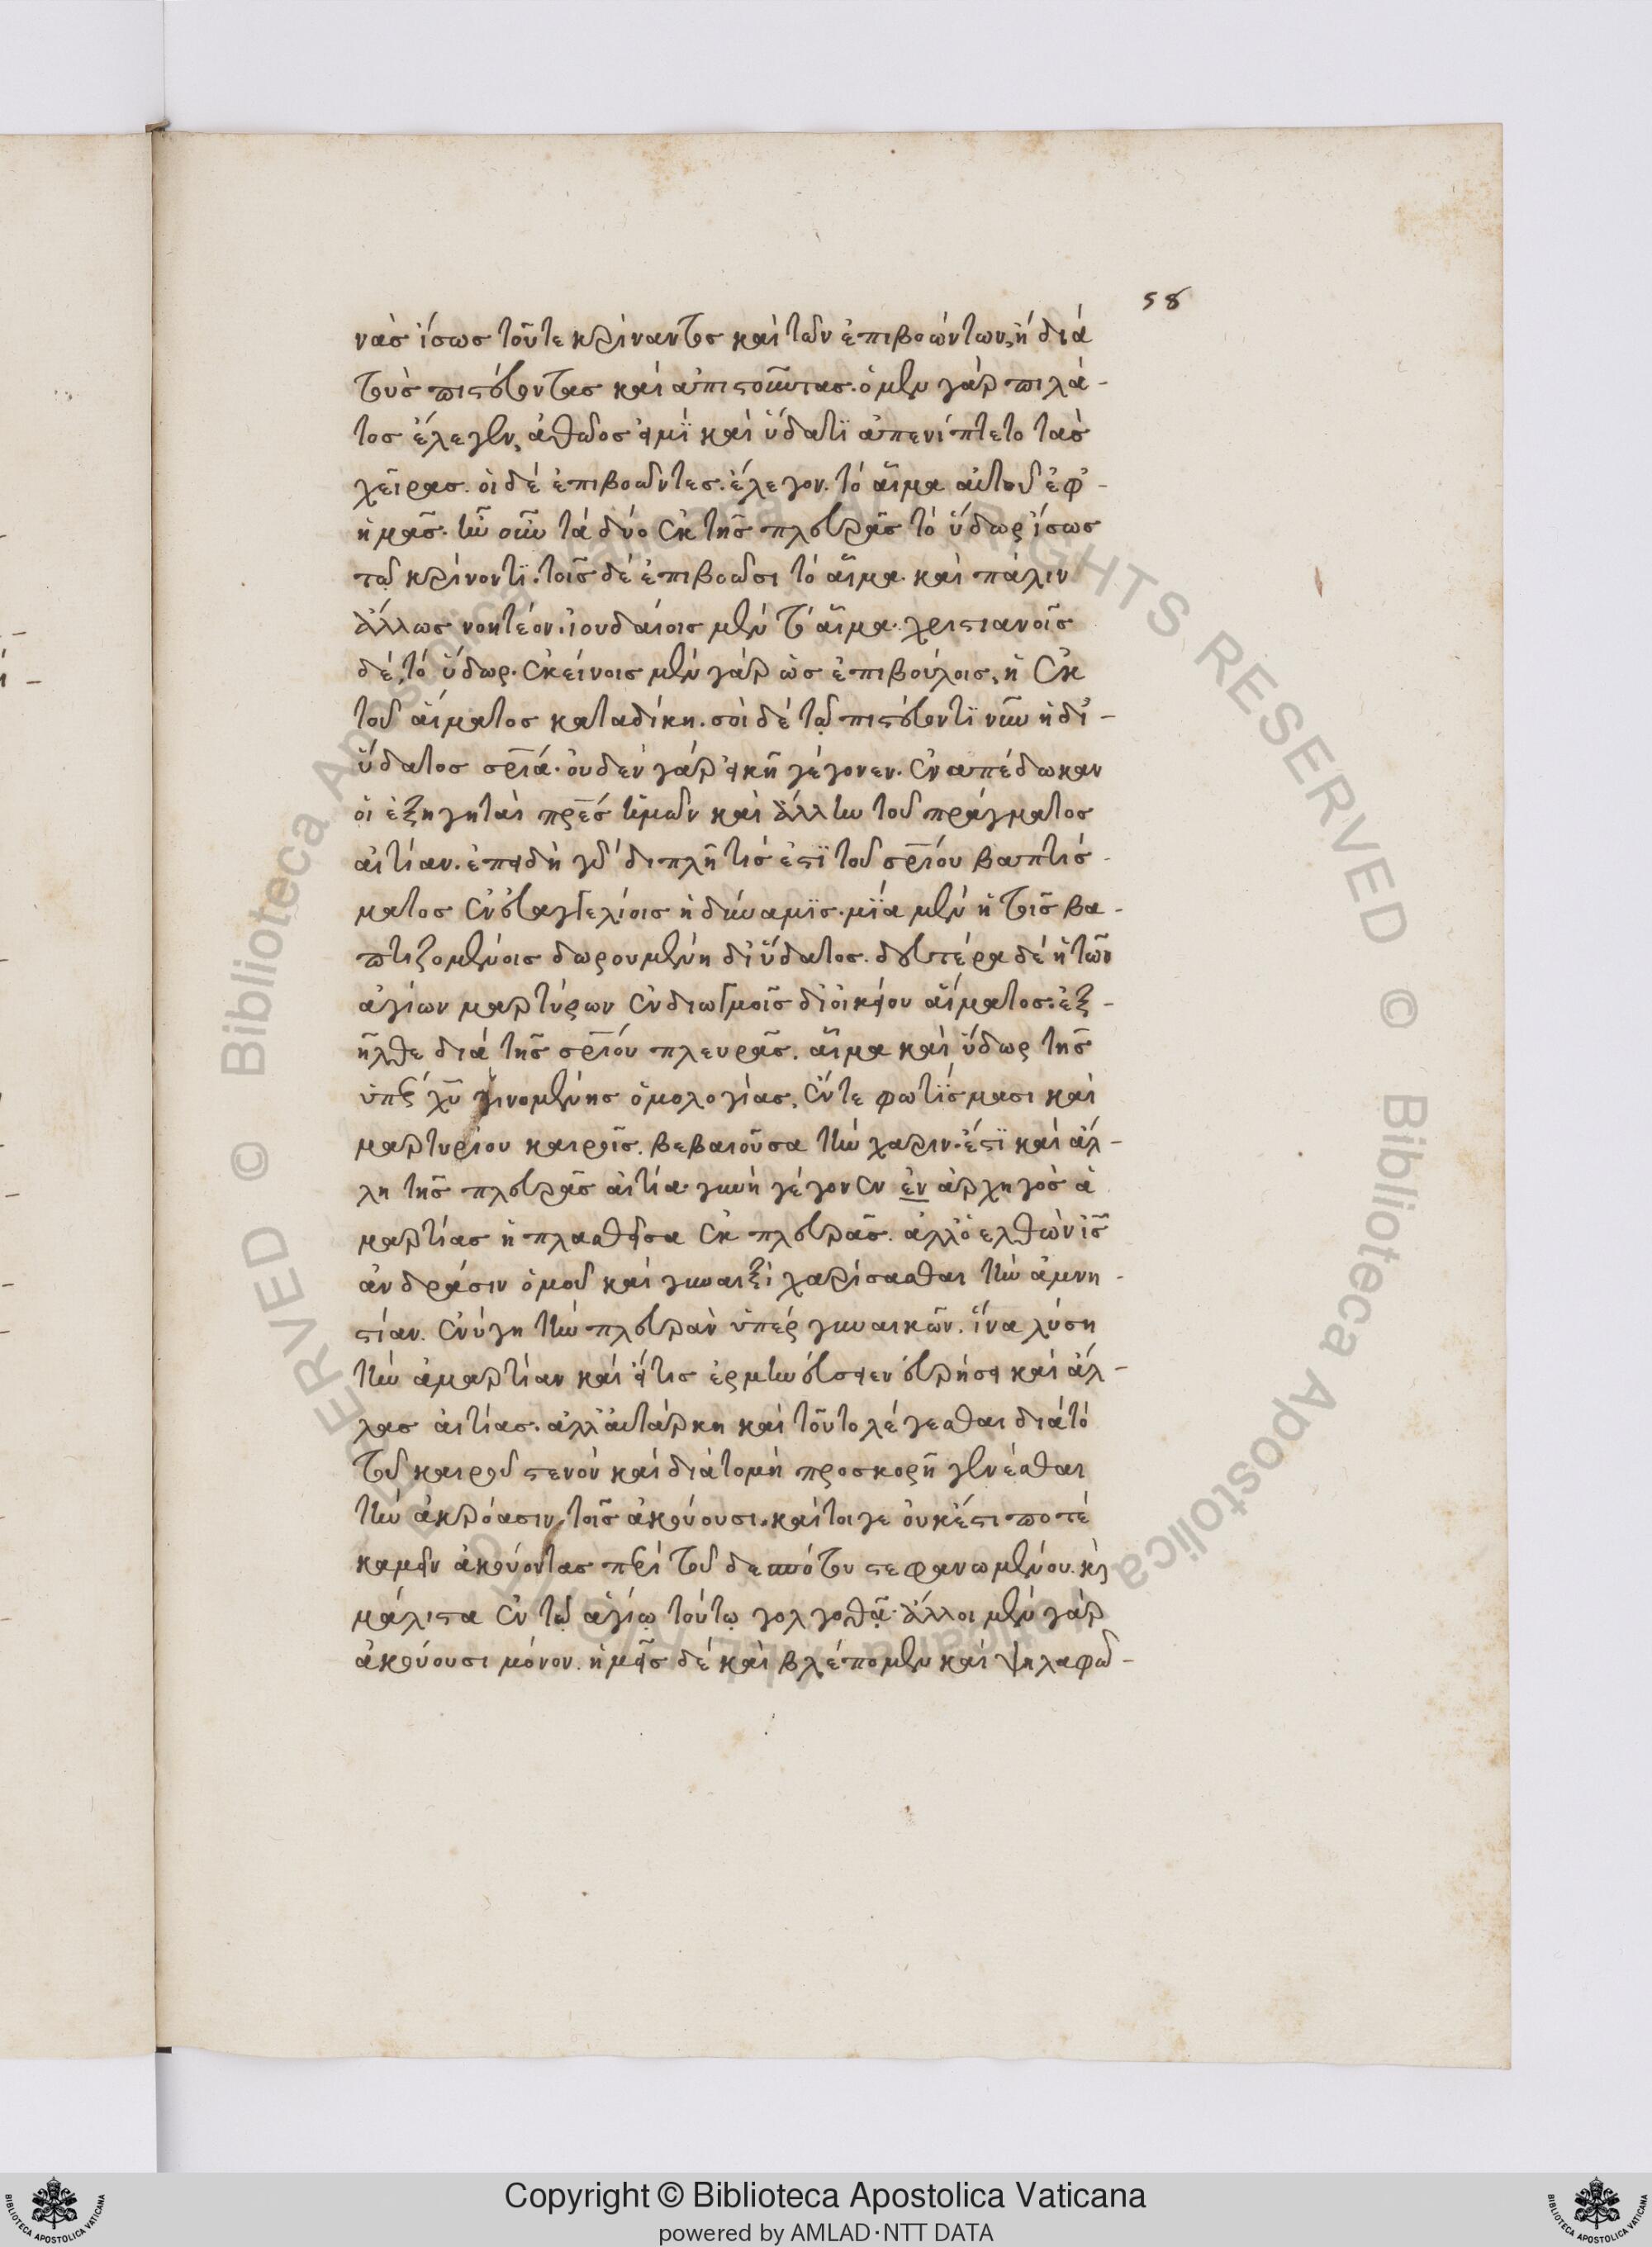 58
νὰσ ἴσωσ τοῦτε κρίναντοσ καὶ τῶν ἐπιβοώντων, ἢ διὰ
τοὺσ πιστεύοντασ καὶ ἀπιστοῦντασ. ὁ μὲν γὰρ πιλά-
τοσ ἔλεγεν, ἀθῶοσ εἰμϊ καὶ ὕδατϊ ἀπενίπτετο τὰσ
χεῖρασ. οἱ δὲ ἐπιβοῶντεσ. ἔλεγον. τὸ αἷμα αὐτοῦ ἐφ -
ἡμᾶσ. ἦν οὖν τὰ δύο ἐκ τῆσ πλευρᾶσ τὸ ὕδωρ ἴσωσ
τῷ κρίνοντϊ. τοῖσ δὲ ἐπιβοῶσι τὸ αἷμα. καὶ πάλιν
ἄλλωσ νοητέον. ἰουδαίοισ μὲν τὸ αἷμα. χριστιανοῖσ
δέ, τὸ ὕδωρ. ἐκείνοισ μὲν γὰρ ὡσ ἐπιβούλοισ, ἡ ἐκ
τοῦ αἵματοσ καταδίκη. σοὶ δὲ τῷ πιστεύοντϊ νῦν ἡ δι -
ὕδατοσ σρ̅ία. οὐδὲν γὰρ εἰκῆ γέγονεν. ἐν ἀπέδωκαν
οἱ ἐξηγηταὶ πρ̅εσ ἡμῶν καὶ ἄλλην τοῦ πράγματοσ
αἰτίαν. ἐπειδὴ γὰρ διπλῆ τίσ ἐστϊ τοῦ σρ̅ίου βαπτίσ-
ματοσ ἐν εὐαγγελίοισ ἡ δύναμϊσ. μϊα μὲν ἡ τοῖσ βα-
πτιζομένοισ δωρουμένη δι ὕδατοσ. δευτέρα δὲ ἡ τῶν
ἁγίων μαρτύρων ἐν διωγμοῖσ δι οἰκείου αἵματοσ. ἐξ-
ῆλθε διὰ τῆσ σρ̅ίου πλευρᾶσ. αἷμα καὶ ὕδωρ τῆσ
ὑπὲρ χ̅υ γινομένησ ὁμολογίασ, ἔν τε φωτϊσμασι καὶ
μαρτυρίου καιροῖσ. βεβαιοῦσα τὴν χάριν. ἔστϊ καὶ ἄλ-
λη τῆσ πλευρᾶσ αἰτία. γυνὴ γέγονεν ἐν ἀρχηγὸσ ἁ
μαρτίασ ἡ πλασθεῖσα ἐκ πλευρᾶσ. ἀλλ ὁ ελθὼν ι̅σ
ἀνδράσιν ὁμοῦ καὶ γυναιξὶ χαρίσασθαι τὴν ἀμνη-
στίαν. ἐνύγη τὴν πλευρὰν ὑπὲρ γυναικῶν. ἵνα λύση
τὴν ἁμαρτίαν καὶ εἴ τισ ἐρευνήσειεν εὑρήσει καὶ ἄλ-
λασ αἰτίασ. ἀλλ αὐτάρκη καὶ τοῦτο λέγεσθαι διὰ τὸ
τοῦ καιροῦ στενὸν καὶ διὰ τὸ μὴ προσκορῆ γενέσθαι
τὴν ἀκρόασιν, τοῖσ ἀκούουσι. καίτοιγε οὐκ ἔστι ποτὲ
καμεῖν ἀκούοντασ περὶ τοῦ δεσπότου στεφανωμένου. κ̀
μάλιστα ἐν τῷ ἁγίῳ τούτῳ γολγοθᾷ. ἄλλοι μὲν γὰρ
ἀκούουσι μόνον. ἡμεῖσ δὲ καὶ βλέπομεν καὶ ψηλαφῶ-
Copyright © Biblioteca Apostolica Vaticana
powered by AMLAD·NTT DATA